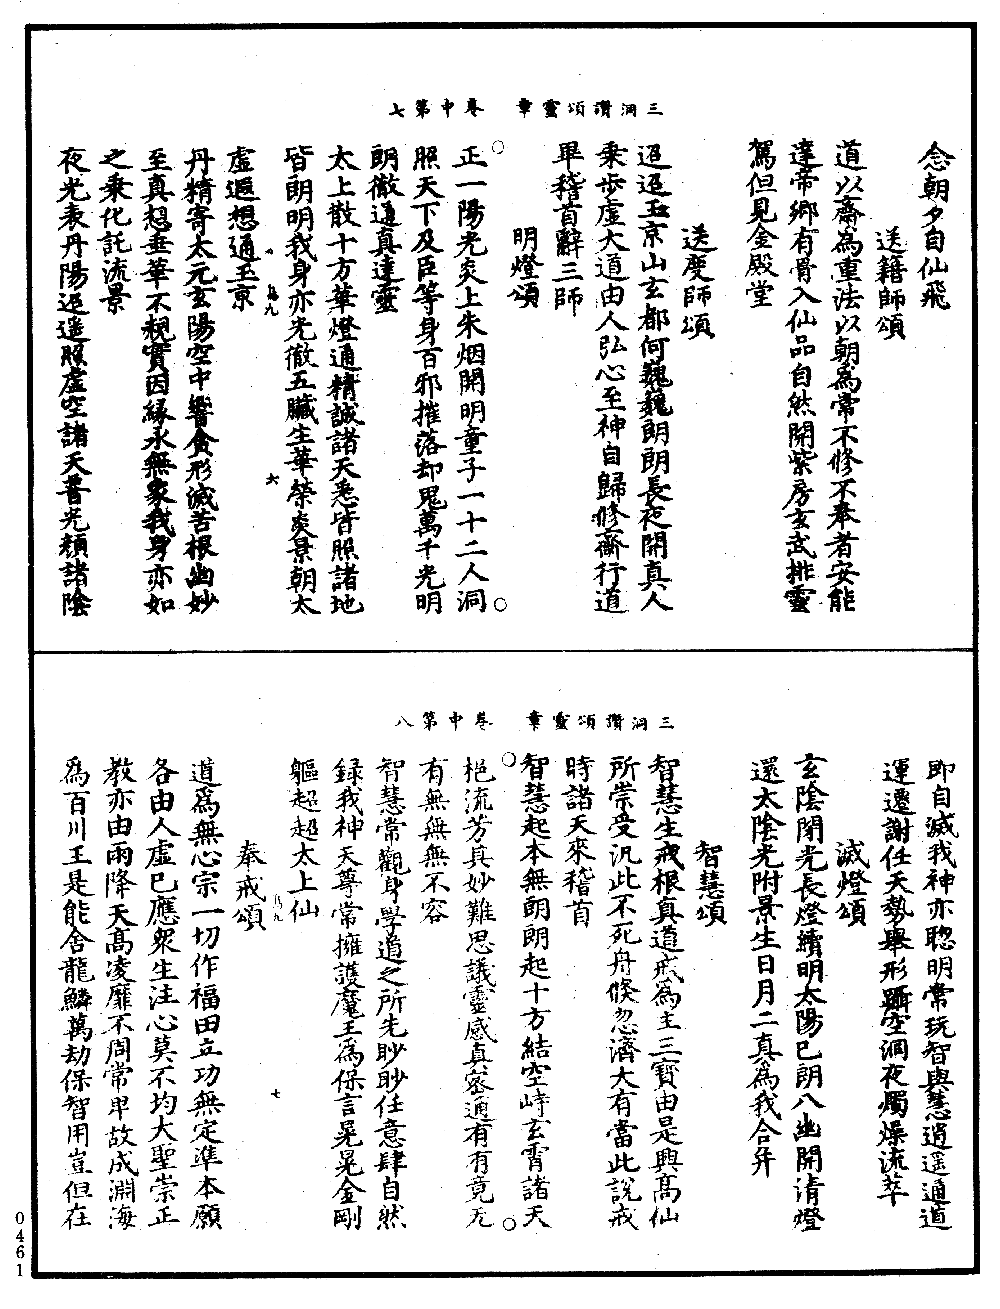 三洞讚頌靈章　卷中第七
念朝夕自仙飛
送籍師頌
道以齋為重法以朝為常不修不奉者安能
達帝鄉有骨入仙品自然開紫房玄武排靈
駕但見金殿堂
送度師頌
迢迢玉京山玄都何巍巍朗朗長夜開真人
乘步虛大道由人弘心至神自歸修齋行道
畢稽首辭三師
明燈頌
正一陽光炎上朱烟開明童子一十二人洞
照天下及臣等身百邪摧落却鬼萬千光明
朗徹通真達靈
太上散十方華燈通精誠諸天悉皆照諸地
皆朗明我身亦光徹五臟生華榮炎景朝太
虛遐想通玉京
丹精寄太元玄陽空中響貪形滅苦根幽妙
至真想垂華不親實因緣永無家我身亦如
之乘化託流景
夜光表丹陽迢遥照虛空諸天書光頹諸陰
三洞讚頌靈章　卷中第八
即自滅我神亦聰明常玩智與慧逍遥通道
運遷謝任天勢舉形躡空洞夜燭燥流萃
滅燈頌
玄陰閉光長燈續明太陽已朗八幽開清燈
還太陰光附景生日月二真為我合并
智慧頌
智慧生戒根真道戒為主三寶由是興高仙
所崇受汎此不死舟倏忽濟大有當此說戒
時諸天來稽首
智慧起本無朗朗起十方結空峙玄霄諸天
挹流芳其妙難思議靈感真寥通有有竟无
有無無無不容
智慧常觀身學道之所先眇眇任意肆自然
録我神天尊常擁護魔王為保言晃晃金剛
軀超超太上仙
奉戒頌
道為無心宗一切作福田立功無定準本願
各由人虛已應眾生注心莫不均大聖崇正
教亦由雨降天高凌靡不周常卑故成淵海
為百川王是能舍龍鱗萬劫保智用豈但在
0461